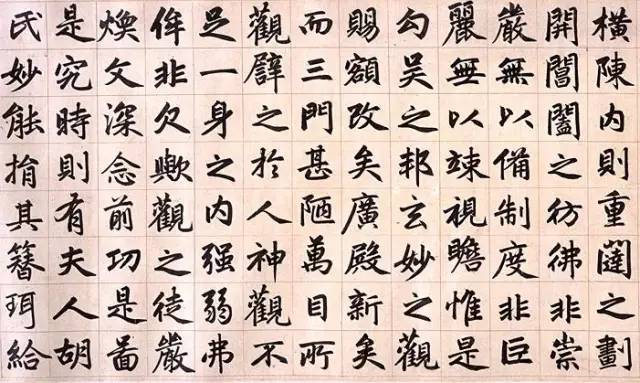 橫陳內則重闥之劃
開閶闔之彷彿非崇
嚴無以備制度非巨
麗無以竦視瞻惟是
勾吳之邦玄妙之觀
賜額改矣廣殿新矣
而三門甚陋萬目所
觀譬之於人神觀不
足一身之内强弱弗
侔非欠歟觀之徒嚴
煥文深念前功是啚
是究時則有夫人胡
氏妙能捐其簪珥給